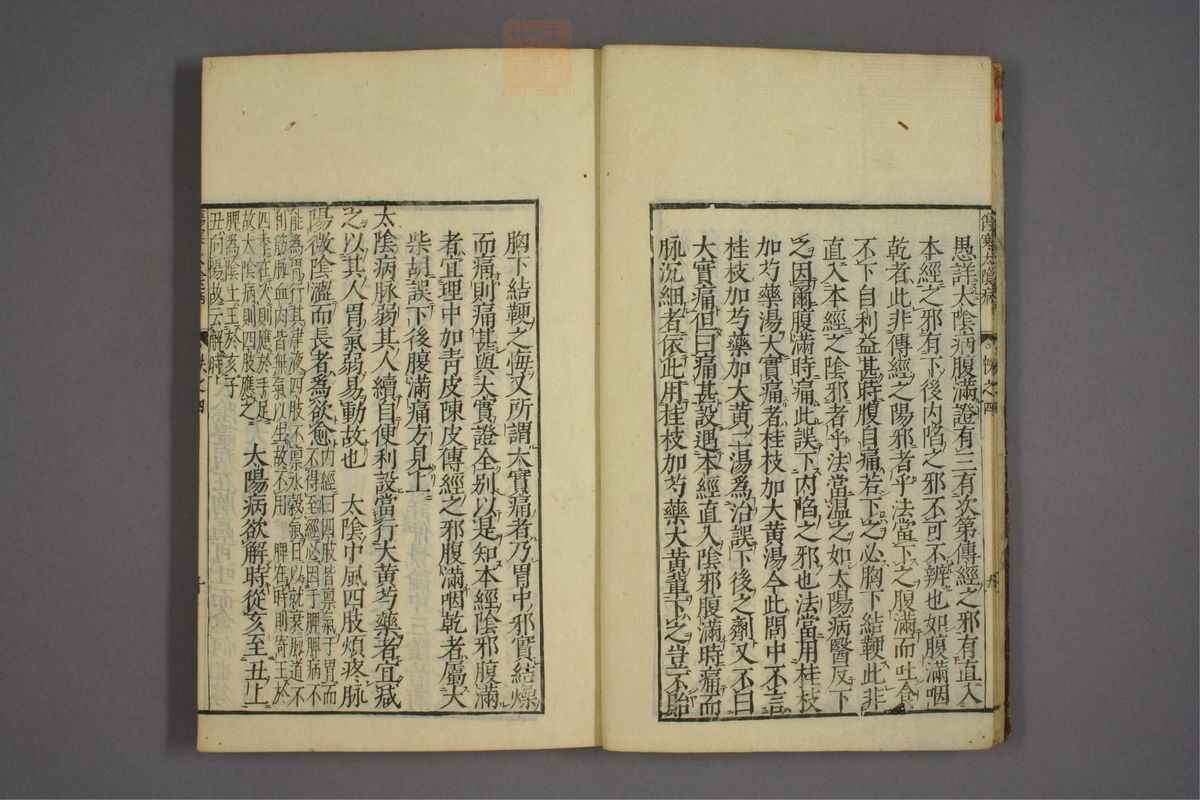 傷寒太陰病
愚詳太陰病腹滿證有三有次第傳經之邪有直入
本經之邪有下後內陷之邪不可不辨也如腹滿咽
乾者此非傳經之陽邪者乎法當下之腹滿而吐食
不下自利益甚時腹自痛若下之必胸下結鞕此非
直入本經之陰邪者乎法當溫之如太陽病醫反下
之因爾腹滿時痛此誤下內陷之邪也法當用桂枝
加芍藥湯大實痛者桂枝加大黃湯今此問中不言
桂枝加芍藥加大黃二湯為治誤下後之劑又不曰
大實痛但曰痛甚設遇本經直入陰邪腹滿時痛而
脉沉細者依此用桂枝加芍藥大黃輩下之豈不貽
胸下結鞕之悔又所謂大實痛者乃胃中邪實結燥
而痛則痛甚與大實證全別以是知本經陰邪腹滿
者宜理中加青皮陳皮傳經之邪腹滿咽乾者屬大
柴胡誤下後腹滿痛方見上
太陰病脉弱其人續自便利設當行大黃芍藥者宜減
之以其人胃氣弱易動故也　太陰中風四肢煩疼脉
陽微陰濇而長者為欲愈內經曰四肢皆禀氣于胃而不得至經必因于脾脾病不
能為胃行其津液四肢不禀水穀氣日以就衰脉道不
利筋脉血肉皆無氣以生故不用　脾在時則寄王於
四季在人則應於手足
故太陰病則四肢應之　太陽病欲解時從亥至丑上
脾為陰土王於亥子
丑向陽故云解時